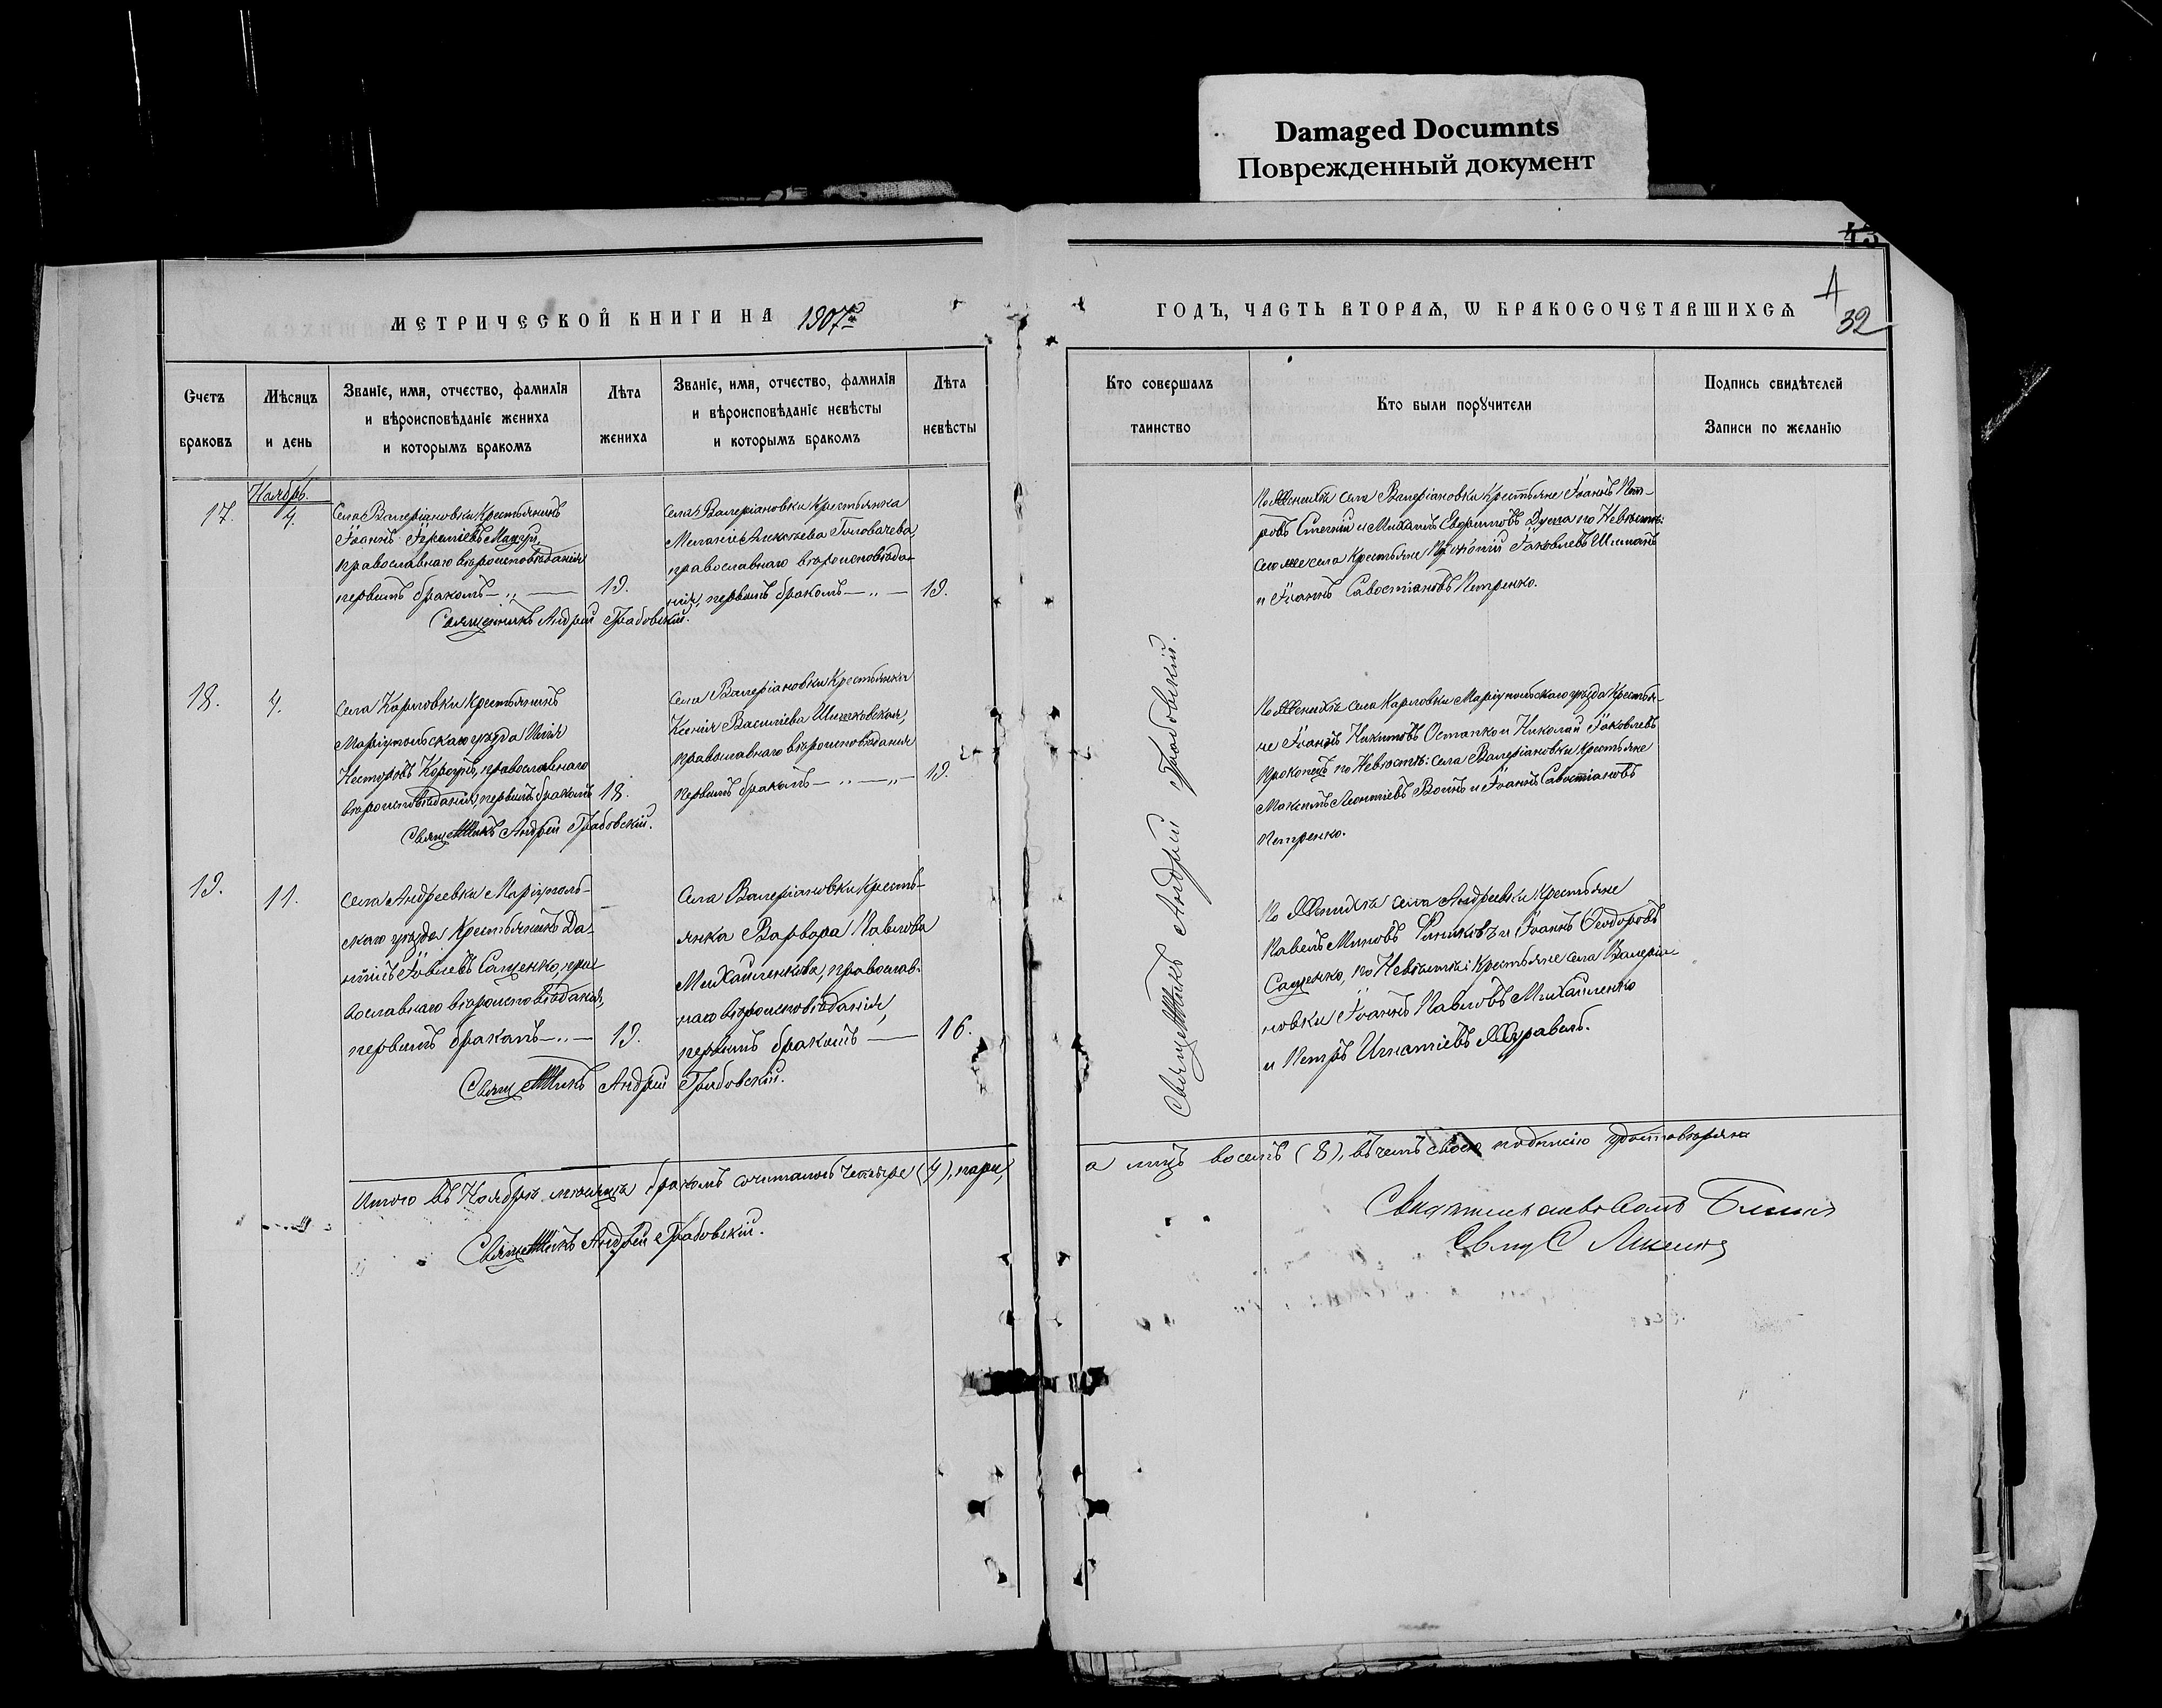 Damaged Documnts
Поврежденный документ
43
32
МЕТРИЧЕСКОЙ КНИГИ НА 1907й
ГОДЪ, ЧАСТЬ ВТОРАѦ, Ѡ БРАКОСОЧЕТАВШИХСѦ
Счетъ
браковъ
Мѣсяцъ
и день
Званіе, имя, отчество, фамилія
и вѣроисповѣданіе жениха
и которымъ бракомъ
Лѣта
жениха
Званіе, имя, отчество, фамилія
и вѣроисповѣданіе невѣсты
и которымъ бракомъ
Лѣта
невѣсты
Кто совершалъ
таинство
Кто были порꙋчители
Подпись свидѣтелей
Записи по желанію
17.
Ноябрь.
4.
Села Валеріановки Крестьянинъ
Іоаннъ
православнаго вѣроисповѣданія
первымъ бракомъ — „ —
19.
Села Валеріановки Крестьянка
Меланія Головачева,
православнаго вѣроисповѣда-
нія, первымъ бракомъ — „ —
19.
Священникъ Андрей Грабовскій.
По Женихѣ села Валеріановки Крестьяне Іоаннъ Пет-
ровъ и Михаилъ Евфимовъ Дума по Невѣстѣ:
села Крестьяне Іаковлевъ
и Іоаннъ Савостіановъ Петренко.
18.
4.
Села Карловки Крестьянинъ
Маріупольскаго уѣзда Илія
Несторовъ православнаго
вѣроисповѣданія, первымъ бракомъ
18.
Села Валеріановки Крестьянка
Ксенія Василіева
православнаго вѣроисповѣданія
первымъ бракомъ — „ — „ —
19.
Священникъ Андрей Грабовскій.
По Женихѣ села Карловки Маріупольскаго уѣзда Крестья-
не Іоаннъ Никитовъ Остапко и Николай Іаковлевъ
Прокопецъ по Невѣстѣ: села Валеріановки Крестьяне
Максимъ Леонтіевъ и Іоаннъ Савостіановъ
Петренко.
19.
11.
Села Андреевки Маріуполь-
скаго уѣзда Крестьянинъ Да-
ніилъ Сащенко, пра-
вославнаго вѣроисповѣданія,
первымъ бракомъ — „ —
19.
Села Валеріановки Кресть-
янка Варвара Павлова
Михайленкова, православ-
наго вѣроисповѣданія,
первымъ бракомъ —
16.
Священникъ Андрей Грабовскій.
Священникъ Андрей Грабовскій.
По Женихѣ села Андреевки Крестьяне
Павелъ и Іоаннъ Ѳеодоровъ
Сащенко, по Невѣстѣ: Крестьяне села Валеріа-
новки Іоаннъ Павловъ Михайленко
и Петръ Игнатіевъ Журавель.
Итого въ Ноябрѣ мѣсяцѣ бракомъ сочетались четыре (4), пары,
а лицъ восемь (8), въ чемъ своею подписью удостовѣряю
Священникъ Андрей Грабовскій.
Свидѣтельствовалъ